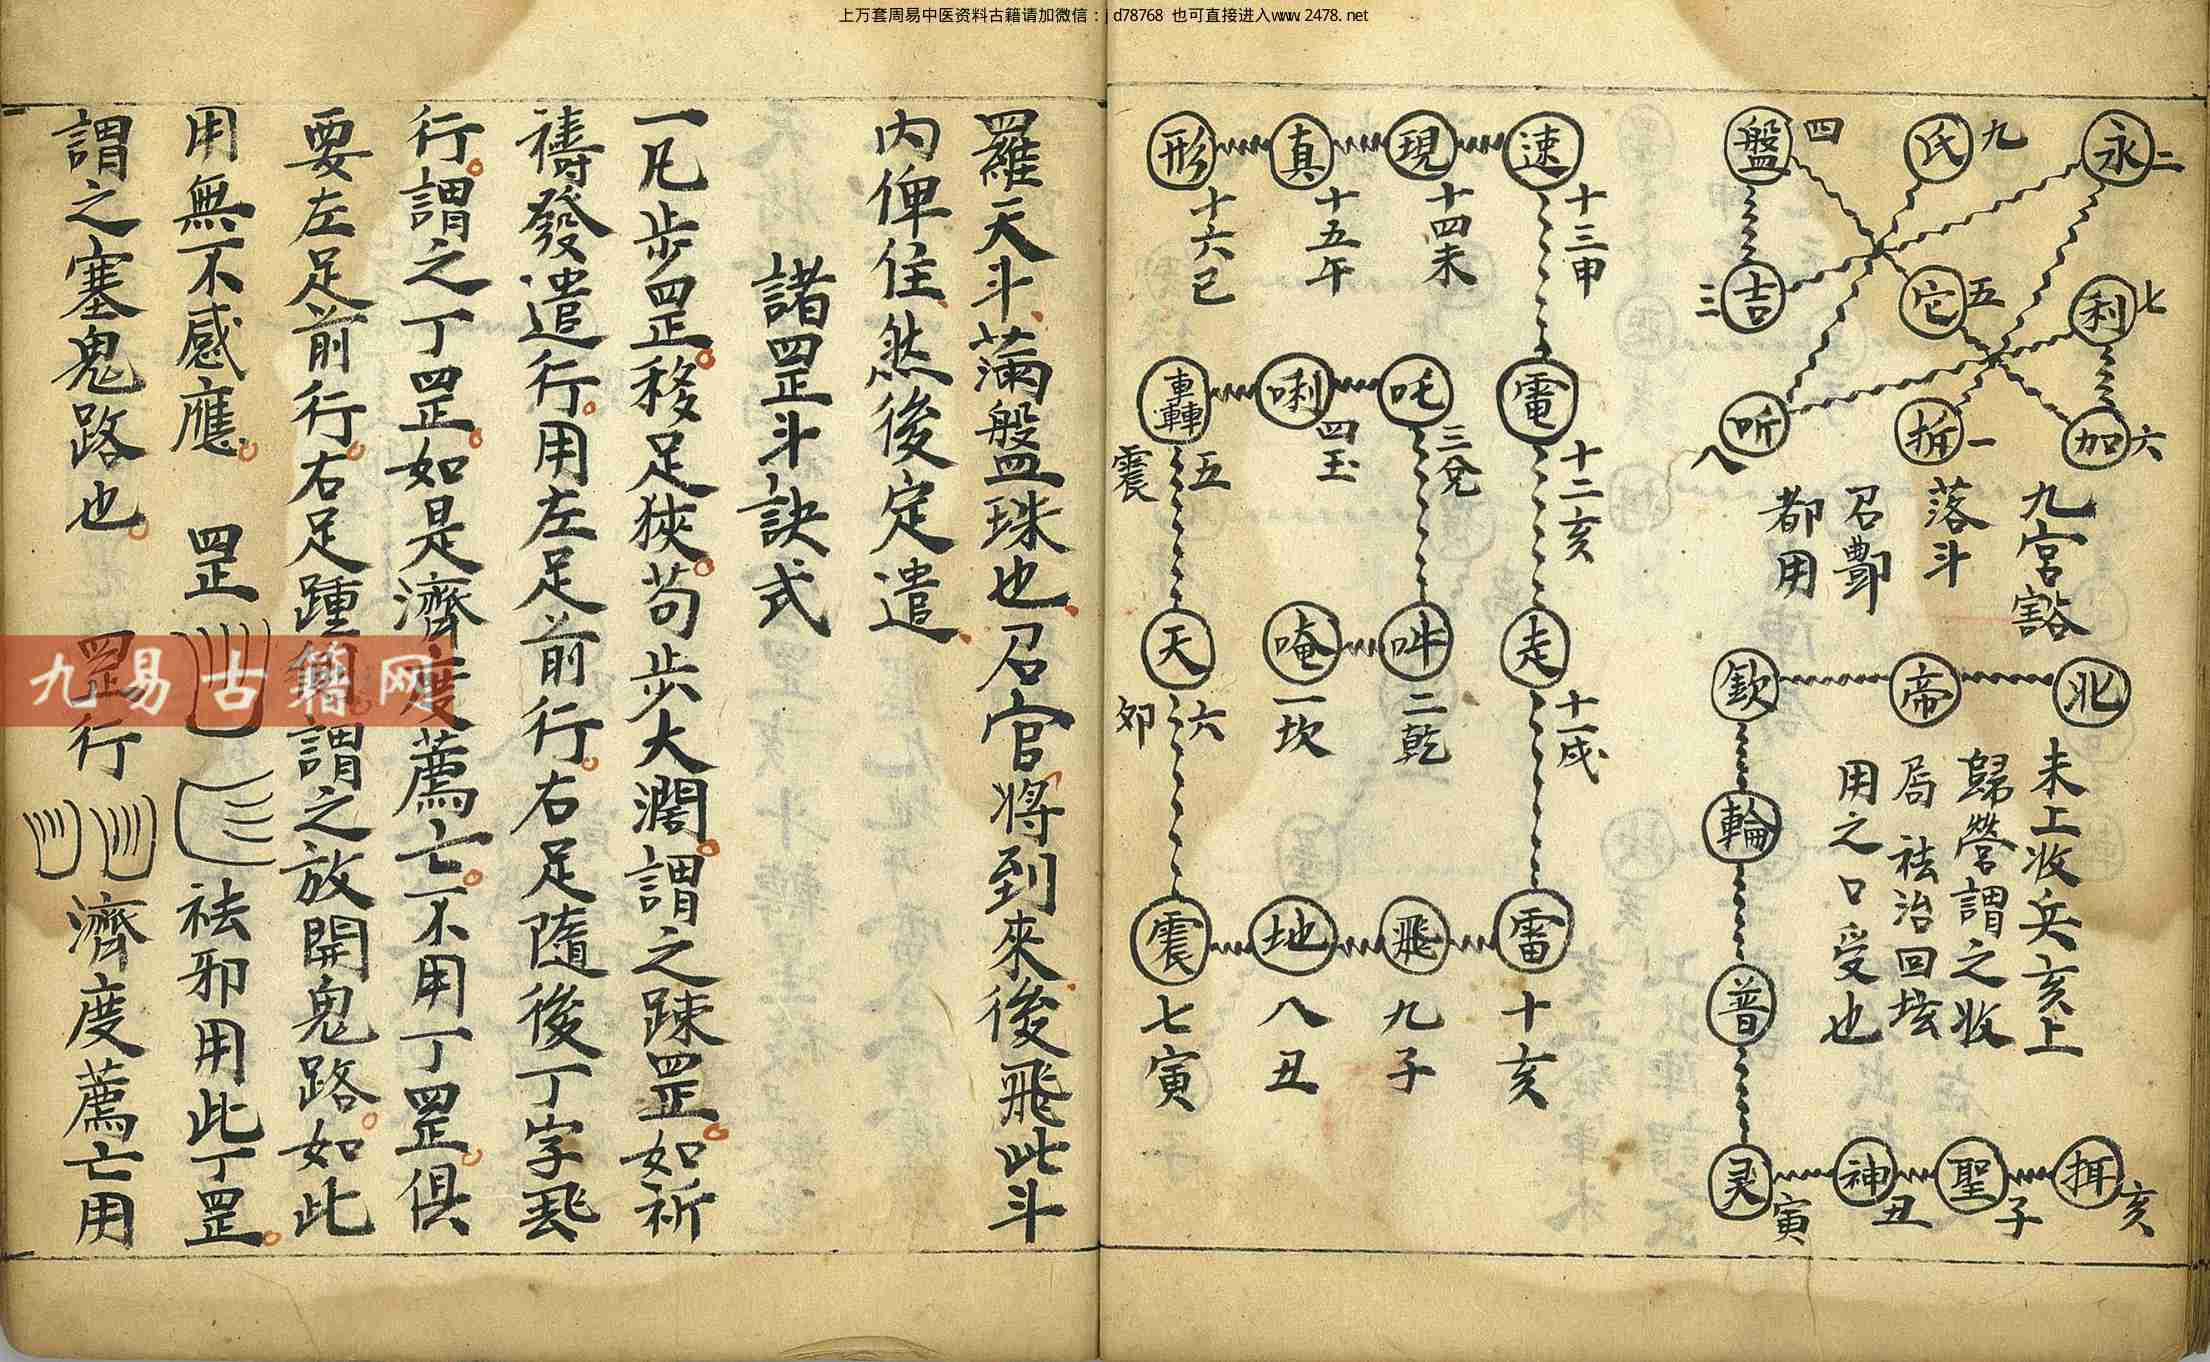 上万套周易中医资料古籍请加微信：jd78768 也可直接进入www.2478.net
永二
氏九
盤四
利七
它五
吉三
加六
折一
听八
九宮豁
落斗
召酆
都用
北 帝 欽
輪
普
灵寅 神丑 聖子 挕亥
未上收兵亥上
歸營謂之收
局祛治回垓
用之口受也
速十三申
現十四未
真十五午
形十六巳
電十二亥
吒三兌
唎四玉
轟五震
走十一戌
吽二乾
唵一坎
天六卯
雷十亥
飛九子
地八丑
震七寅
羅天斗滿盤珠也召官將到來後飛此斗
内俾住然後定遣
諸罡斗訣式
一凡步罡移足狹苟步大濶謂之踈罡如祈
禱發遣行用左足前行右足隨後丁字飛
行謂之丁罡如是濟度薦亡不用丁罡俱
要左足前行右足踵謂之放開鬼路如此
用無不感應 罡 祛邪用此丁罡
謂之塞鬼路也 罡行 濟度薦亡用
九易古籍网